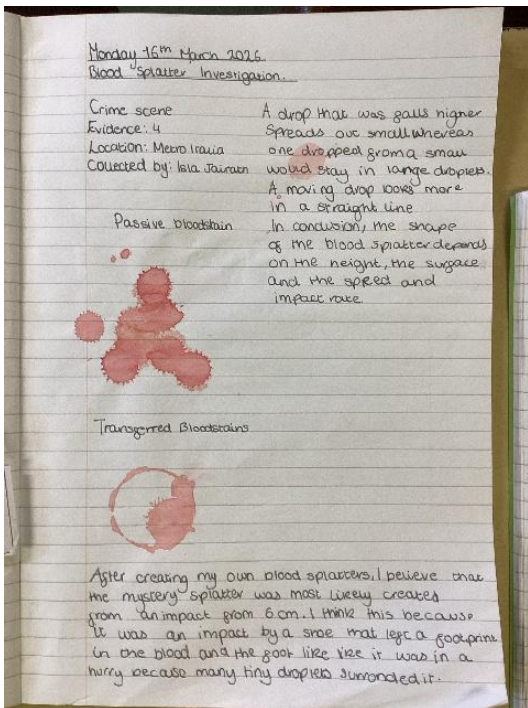 Monday 16th March 2026
Blood Splatter Investigation.
Crime scene
Evidence: 4
Location: Metro Italia
Collected by: Isla Jairath
A drop that was falls higher
Spreads out small whereas
one dropped from a small
would stay in large droplets.
A moving drop looks more
in a straight line
In conclusion, the shape
of the blood splatter depends
on the height, the surface
and the speed and
impact rate
Passive bloodstain
Transferred Bloodstains
After creating my own blood splatters, I believe that
the mystery splatter was most likely creates
from an impact from 6cm. I think this because
it was an impact by a shoe that left a footprint
in the blood and the foot like like it was in a
hurry because many tiny droplets surronded it.